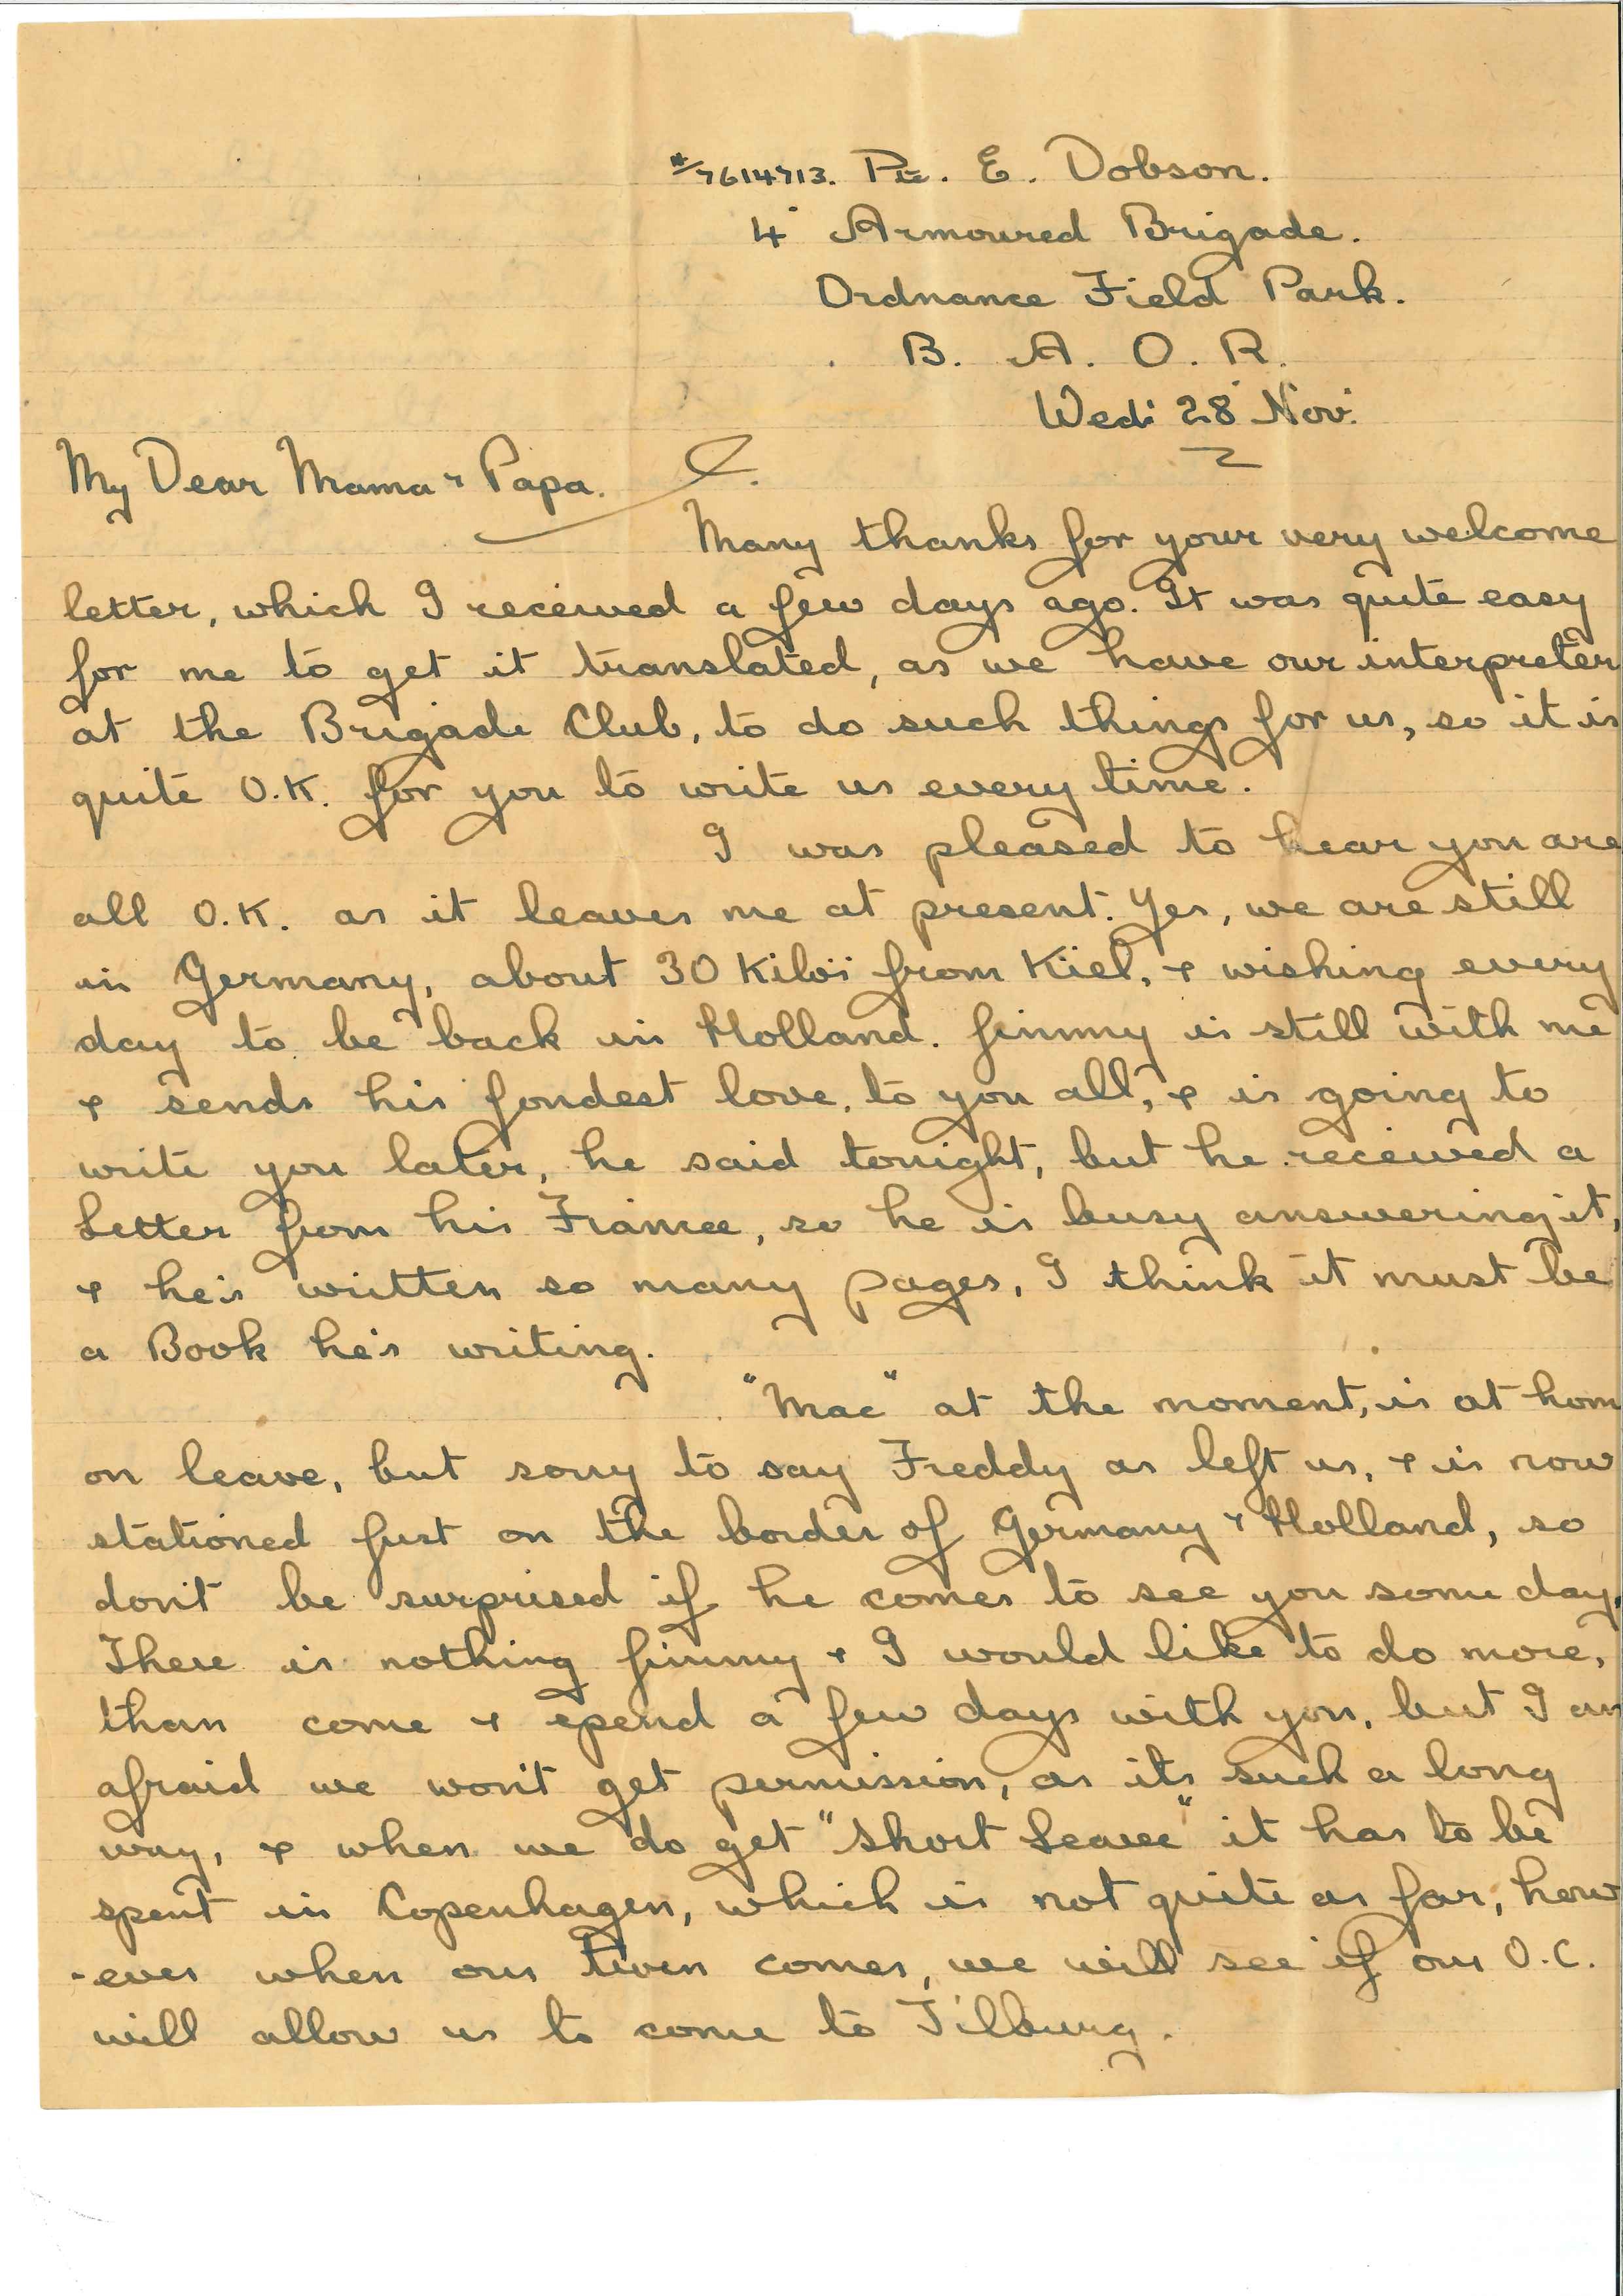 #/7614713. Pte. E. Dobson.
4 Armoured Brigade.
Ordnance Field Park.
B. A. O. R.
Wed: 28 Nov:
My Dear Mama & Papa.
Many thanks for your very welcome
letter, which I received a few days ago. It was quite easy
for me to get it translated, as we have our interpreter
at the Brigade Club, to do such things for us, so it is
quite O.K. for you to write us every time.
I was pleased to hear you are
all O.K. as it leaves me at present. Yes, we are still
in Germany, about 30 Kilo: from Kiel, & wishing every
day to be back in Holland. Jimmy is still with me
& sends his fondest love, to you all, & is going to
write you later, he said tonight, but he received a
Letter from his Fiancee, so he is busy answering it,
& he's written so many pages, I think it must be
a Book he's writing.
"Mac" at the moment, is at hom
on leave, but sorry to say Freddy as left us, & is now
stationed just on the border of Germany & Holland, so
don't be surprised if he comes to see you some day.
There is nothing Jimmy & I would like to do more,
than come & spend a few days with you, but I am
afraid we won't get permission, as its such a long
way, & when we do get "Short Leave" it has to be
spent in Copenhagen, which is not quite as far, how
-ever when our turn comes, we will see if our O.C.
will allow us to come to Tilburg.